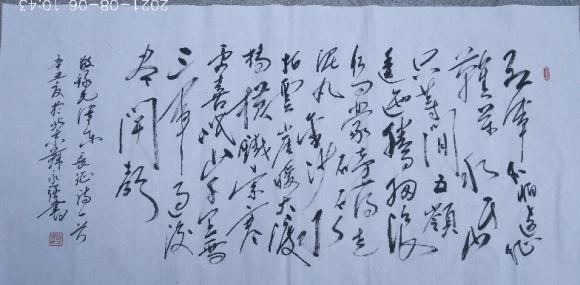 红军不怕远征
难万水千山
只等闲五嶺
逶迤腾细浪
乌蒙磅礴走
泥丸金沙水
拍雲崖暖大渡
橋横鐵索寒
更喜岷山千里雪
三軍过後
尽開颜
敬录毛泽东长征诗一首
辛丑夏於北京
2021-08-06 10:43